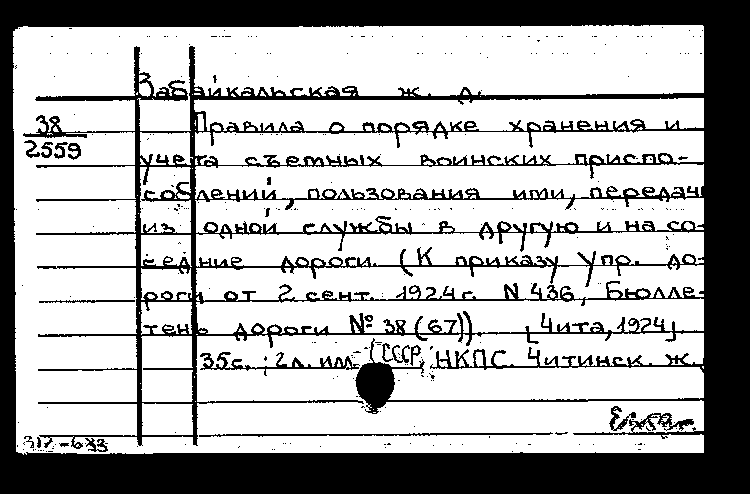 Забайкальская ж. д.
38
2559
Правила о порядке хранения и
учета съемных воинских приспо-
соблений, пользования ими, передачи
из одной службы в другую и на со-
седние дороги. (К приказу Упр. до-
роги от 2 сент. 1924 г. N 436, Бюлле-
тень дороги № 38 (67)). [Чита, 1924]
35 с.; 2 л. илл (СССР, НКПС. Читинск. ж.
312-633